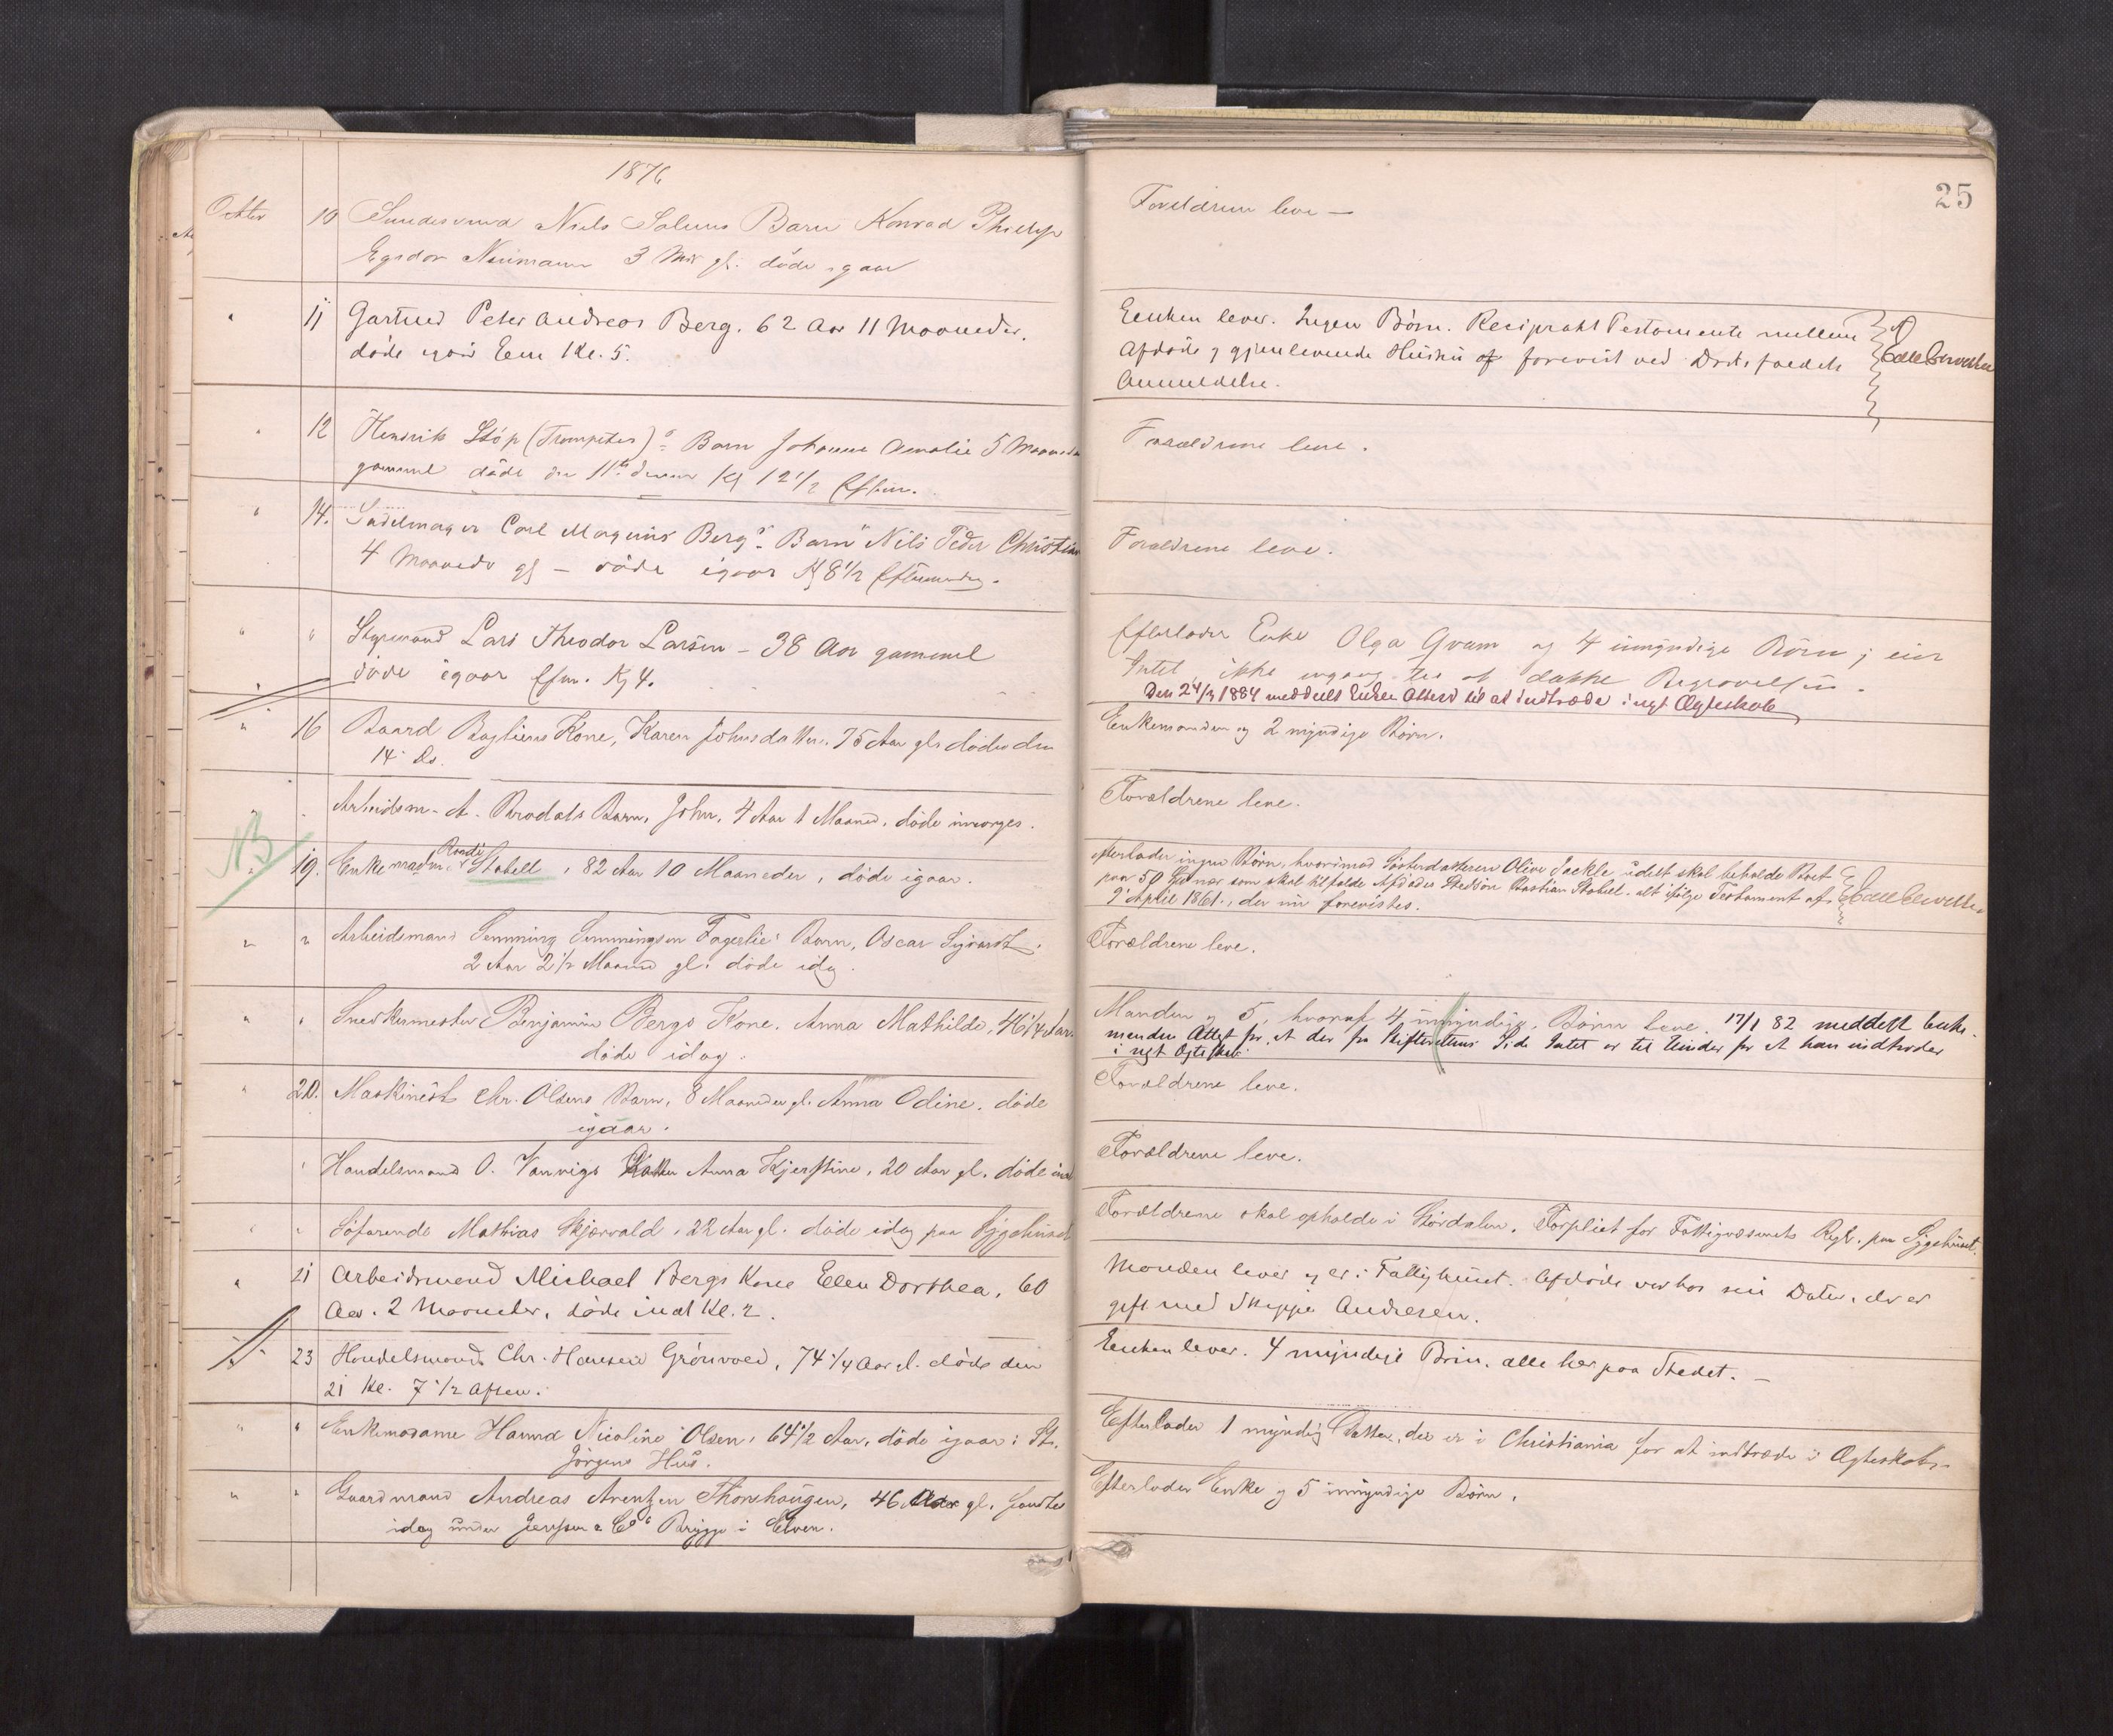 1876
25
Octbr 10 Niels Barn Konrad
Neimann 3 Mdr gl. døde igaar
Forældrene leve —
" 11 Gartner Peter Andreas Berg. 62 Aar 11 Maaneder.
døde igaar Em Kl. 5.
Enken lever. Ingen Børn. Resiprokt Testamente mellem
Afdøde og gjenlevende Hustru forevist ved Dødsfaldets
Anmeldelse.
" 12 Henrik Støp (Trompeter)s Barn Johanne Amalie 5 Maaneder
gammel døde den 11te dennes Kl 12 1/2 Efterm.
Forældrene leve.
" 14. Sadelmager Carl Magnus Bergs Barn Nils Peder Christian
4 Maaneder gl — døde igaar Kl 8 1/2 Eftermiddag.
Forældrene leve.
" " Styrmand Lars Theodor Larsen – 38 Aar gammel
døde igaar Efm. Kl 4.
Efterlader Enke Olga Qvam og 4 umyndige Børn; eier
Intet, ikke engang til at dække Begravelsen.
Den 24/3 1884 meddeelt Enken Attest til at indtræde i nyt Ægteskab
" 16 Baard Bagliens Kone, Karen Johnsdatter. 75 Aar gl. døde den
14 ds.
Enkemanden og 2 myndige Børn.
" " Arbeidsm. A. Brodals Barn, John, 4 Aar 1 Maaned, døde imorges.
Forældrene leve.
NB
" 19. Enkemadm. Randi Stabell, 82 Aar 10 Maaneder, døde igaar.
efterlader ingen Børn, hvorimod Søsterdatteren Olive Jackle udelt skal beholde Boet
paa 50 nær som skal tilfalde Afdødes Stedsøn Bastian Stabel. alt ifølge Testament af
9 April 1861., der nu forevistes.
" " Arbeidsmand Semming Semmingsen Fagerlies Barn, Oscar Sigvardt.
2 Aar 2 1/2 Maaned gl. døde idag.
Forældrene leve.
" " Snedkermester Benjamin Bergs Kone. Anna Mathilde, 46 1/4 Aar.
døde idag.
Manden og 5, hvoraf 4 umyndige, Børn leve. 17/1 82 meddelt Enke-
manden Attest for, at der fra Skifterettens Side Intet er til Hinder for at han indtræder
i nyt Ægteskab.
" 20. Maskinist Chr. Olsens Barn, 8 Maaneder gl. Anna Odine. døde
igaar.
Forældrene leve.
" Handelsmand O. Vanvigs Datter Anna Kjerstine, 20 Aar gl. døde
Forældrene leve.
" " Søfarende Mathias Skjervald, 22 Aar gl. døde idag paa Sygehuset
Forældrene skal opholde i Størdalen. Forpliet for Fattigvæsenets Regn. paa Sygehuset.
" 21 Arbeidsmand Michael Bergs Kone Ellen Dorthea, 60
Aar. 2 Maaneder, døde inat Kl. 2.
Manden lever og er i Fattighuset. Afdøde var hos sin Datter, der er
gift med Skipper Andresen.
" 23 Handelsmand Chr. Hansen Grønvold, 74 1/4 Aar gl. døde den
21 Kl. 7 1/2 Aften.
Enken lever. 4 myndige Børn. alle her paa Stedet. —
" " Enkemadame Hanna Nicoline Olsen, 64 1/2 Aar, døde igaar i St.
Jørgens Hus.
Efterlader 1 myndig Datter, der er i Christiania for at indtræde i Ægteskab.
" " Gaardmand Andreas Arentzen Thorshaugen, 46 Aar gl. fandtes
idag under Jenssen & Cos Brygge i Elven.
Efterlader Enke og 5 umyndige Børn.